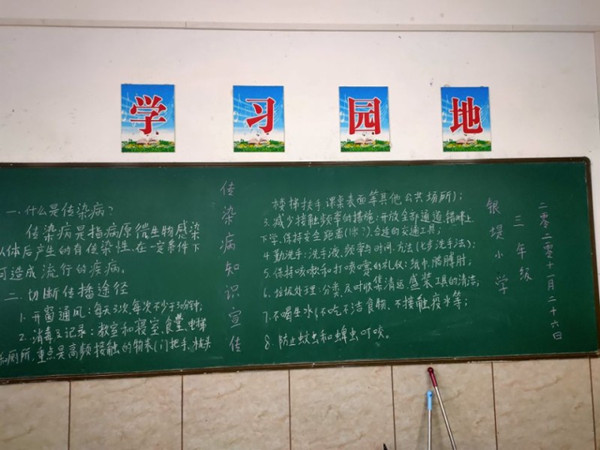 学习园地
一.什么是传染病?
传染病是指病原微生物感染
人体后产生的有传染性、在一定条件下
可造成流行的疾病。
二.切断传播途径
1.开窗通风:每天3次,每次不少于30分钟;
2.消毒与记录:教室和寝室,食堂,电梯
厕所,重点是高频接触的物表(门把手、扶手
传染病知识宣传
楼梯扶手课桌表面等其他公共场所);
3.减少接触频率的措施:开放全部通道,错峰上
下学,保持安全距离
4.勤洗手:洗手液,频率,时间,方法(七步洗手法);
5.保持咳嗽和打喷嚏的礼仪:纸巾,胳膊肘;
6.垃圾处理:分类,及时收集清运,盛装工具的清洁;
7.不喝生水,不吃不洁食物,不接触疫水等;
8.防止蚊虫和蜱虫叮咬。
银堤小学
三年级
二零二零十一月二十六日